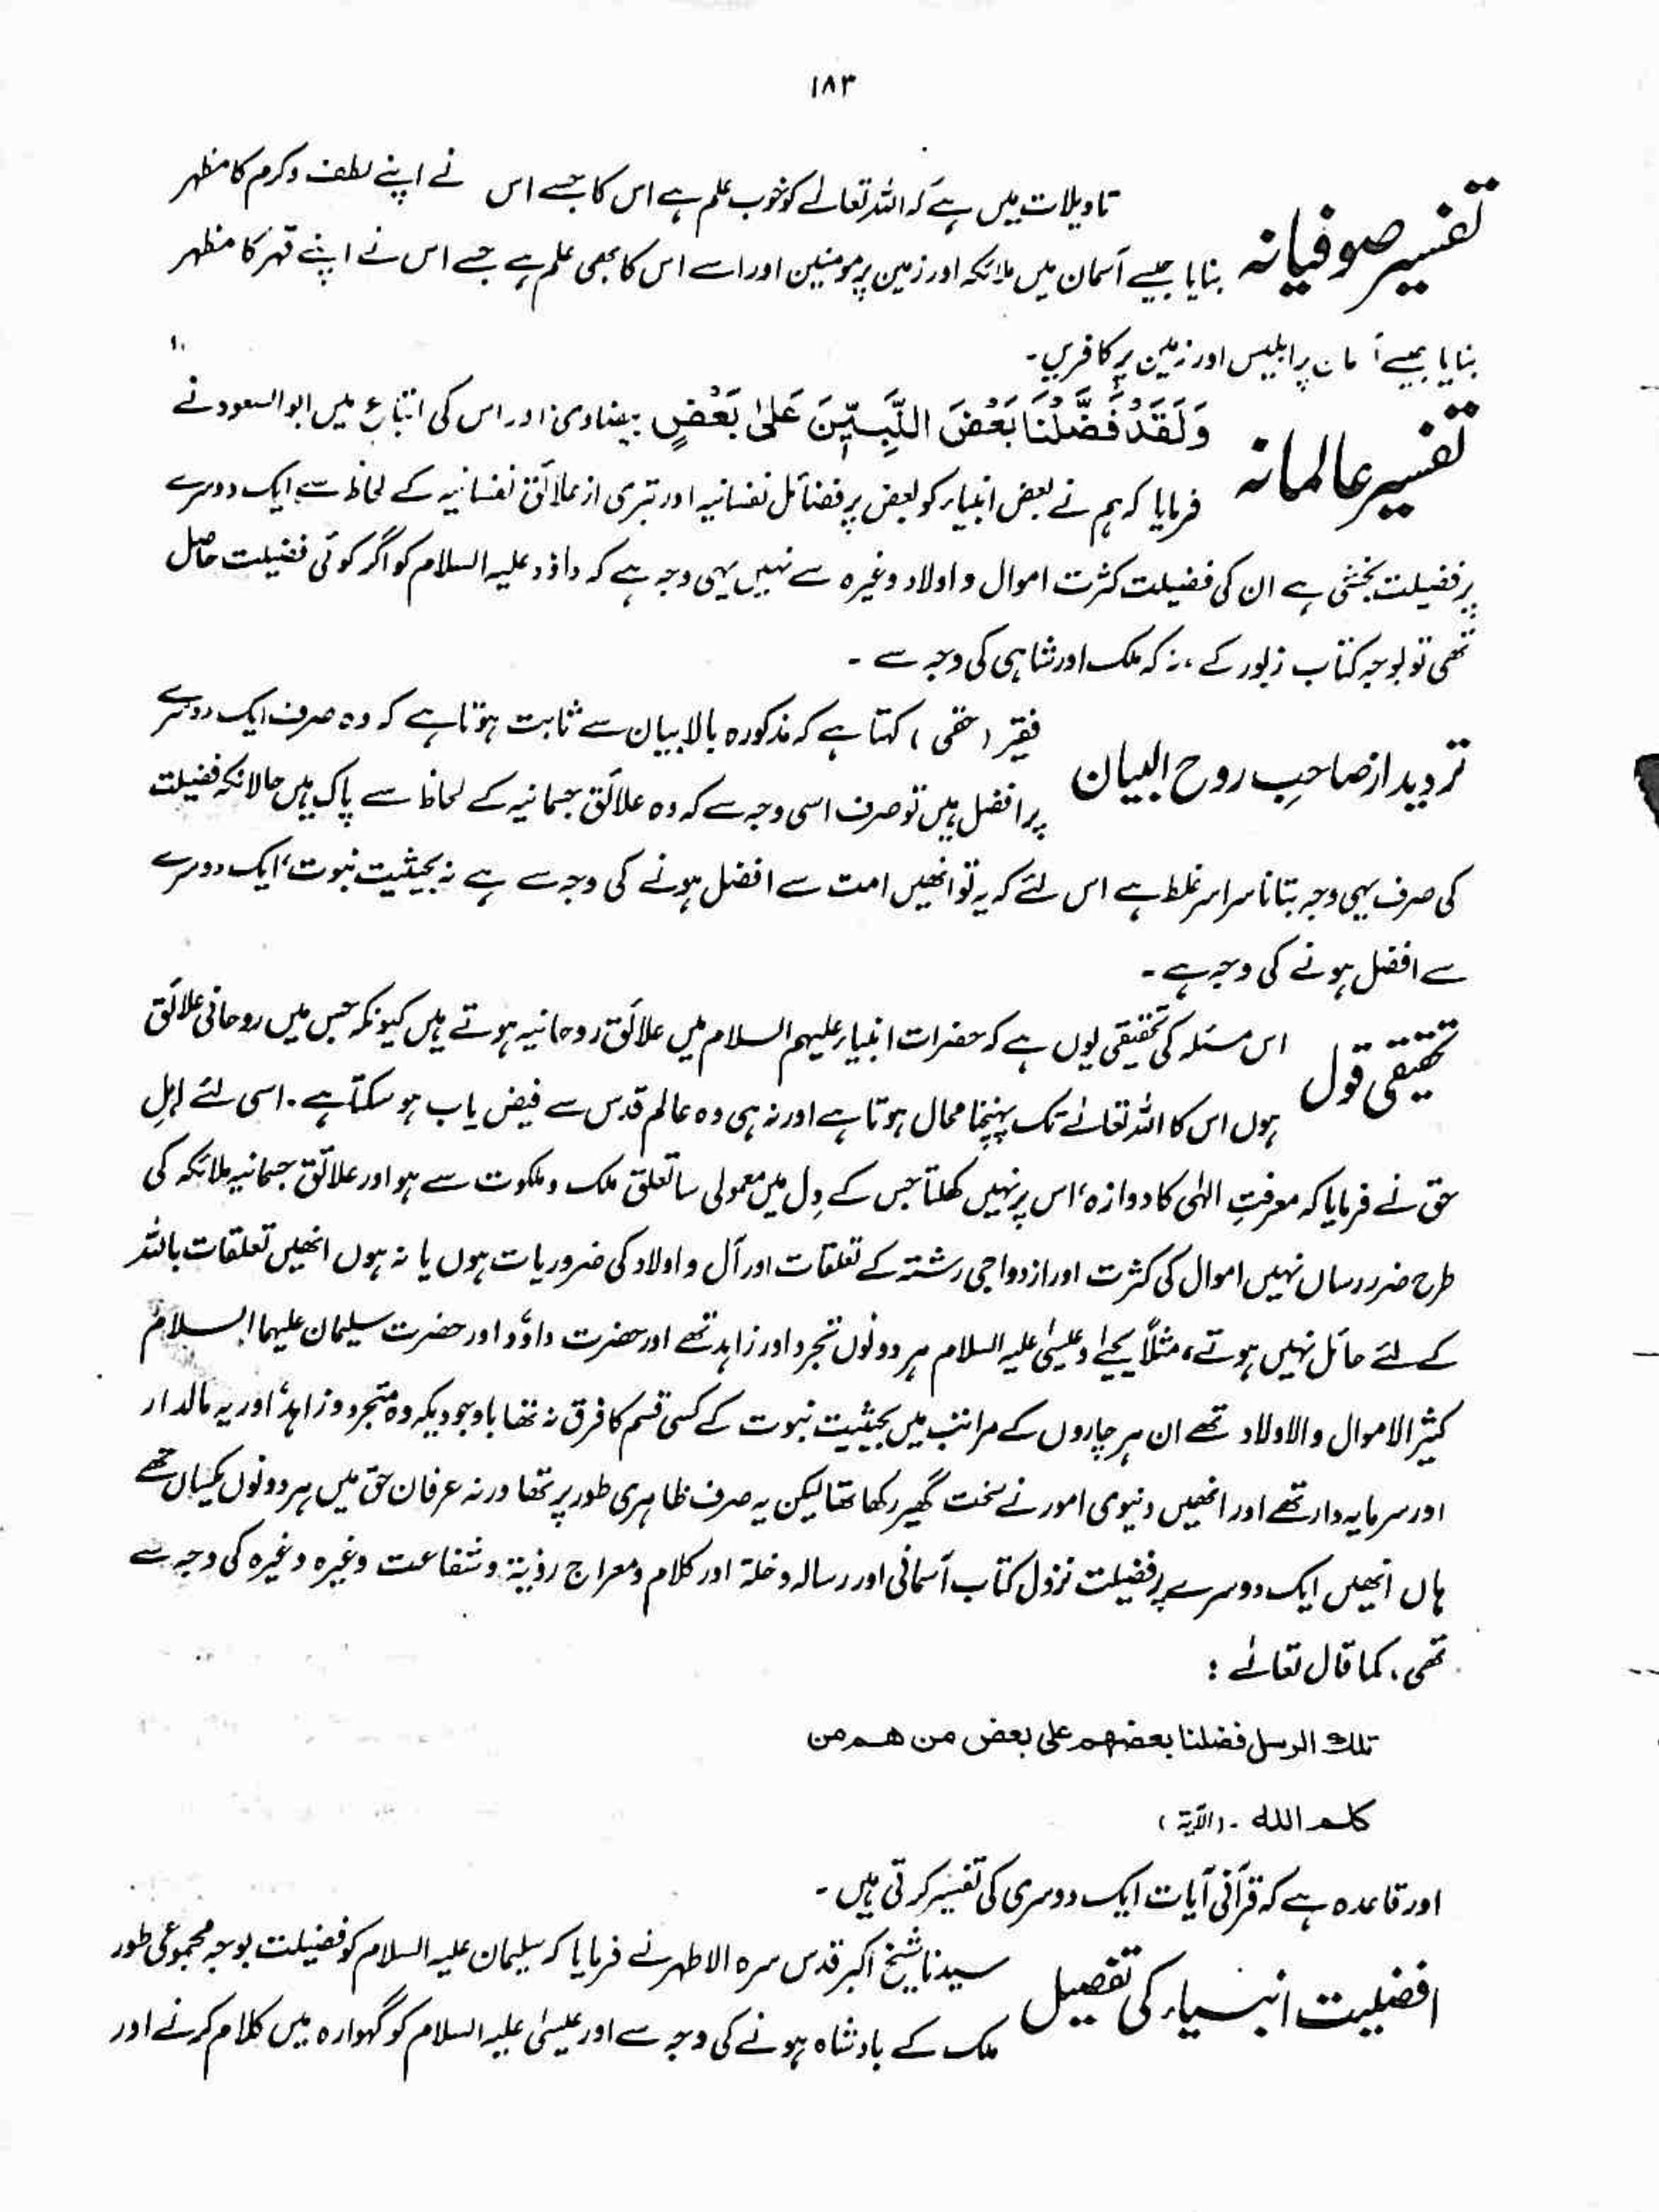 ۱۸۳
تفسیر صوفیانہ
تاویلات میں ہے کہ اللہ تعالےٰ کو خوب علم ہے اس کا جسے اس نے اپنے لطف وکرم کا مظہر
بنایا جیسے آسمان میں ملائکہ اور زمین پر مومنین اور اسے اس کا بھی علم ہے جسے اس نے اپنے قہر کا مظہر
بنایا جیسے آ مان پر ابلیس اور زمین پر کافریں۔
تفسیر عالمانہ
وَلَقَدْ فَضَّلْنَا بَعْضَ النَّبِيّٖنَ عَلٰى بَعْضٍ بیضاوی اور اس کی اتباع میں ابوالسعود نے
فرمایا کہ ہم نے بعض انبیاء کو بعض پر فضائل نفسانیہ اور تبری از علائق نفسانیہ کے لحاظ سے ایک دوسرے
پر فضیلت بخشی ہے ان کی فضیلت کثرت اموال و اولاد وغیرہ سے نہیں یہی وجہ ہے کہ داؤد علیہ السلام کو اگر کوئی فضیلت حاصل
تھی تو بوجہ کتاب زبور کے ، نہ کہ ملک اور شاہی کی وجہ سے ۔
تردید از صاحبِ روح البیان
فقیر (حقی) کہتا ہے کہ مذکورہ بالا بیان سے ثابت ہوتا ہے کہ وہ صرف ایک دوسرے
پر افضل ہیں تو صرف اسی وجہ سے کہ وہ علائق جسمانیہ کے لحاظ سے پاک ہیں حالانکہ فضیلت
کی صرف یہی وجہ بتانا سراسر غلط ہے اس لئے کہ یہ تو انھیں امت سے افضل ہونے کی وجہ سے ہے نہ بحیثیت نبوت، ایک دوسرے
سے افضل ہونے کی وجہ ہے ۔
تحقیقی قول
اس مسئلہ کی تحقیقی یوں ہے کہ حضرات انبیاء علیہم السلام میں علائق روحانیہ ہوتے ہیں کیونکہ جس میں روحانی علائق
ہوں اس کا اللہ تعالےٰ تک پہنچنا محال ہوتا ہے اور نہ ہی وہ عالم قدس سے فیض یاب ہو سکتا ہے۔ اسی لئے اہلِ
حق نے فرمایا کہ معرفتِ الہٰی کا دروازہ، اس پر نہیں کھلتا جس کے دِل میں معمولی سا تعلق ملک و ملکوت سے ہو اور علائق جسمانیہ ملائکہ کی
طرح ضرر رساں نہیں اموال کی کثرت اور ازدواجی رشتہ کے تعلقات اور آل و اولاد کی ضروریات ہوں یا نہ ہوں انھیں تعلقات باللہ
کے لئے حائل نہیں ہوتے، مثلاً یحییٰ و عیسیٰ علیہ السلام ہر دونوں تجرد اور زاہد تھے اور حضرت داؤد اور حضرت سلیمان علیہما السلام
کثیر الاموال والاولاد تھے ان ہر چاروں کے مراتب میں بحیثیت نبوت کے کسی قسم کا فرق نہ تھا باوجودیکہ وہ متجرد و زاہد، اور یہ مالدار
اور سرمایہ دار تھے اور انھیں دنیوی امور نے سخت گھیر رکھا تھا لیکن یہ صرف ظاہری طور پر تھا ورنہ عرفان حق میں ہر دونوں یکساں تھے
ہاں انھیں ایک دوسرے پر فضیلت نزول کتاب آسمانی اور رسالہ و خلۃ اور کلام و معراج رؤیۃ و شفاعت وغیرہ وغیرہ کی وجہ سے
تھی ، کما قال تعالےٰ :
تلك الرسل فضلنا بعضهم على بعض من هم من
كلم الله ۔ (الآیۃ)
اور قاعدہ ہے کہ قرآنی آیات ایک دوسری کی تفسیر کرتی ہیں ۔
افضلیت انبیاء کی تفصیل
سیدنا شیخ اکبر قدس سرہ الاطہر نے فرمایا کہ سلیمان علیہ السلام کو فضیلت بوجہ مجموعی طور
ملک کے بادشاہ ہونے کی وجہ سے اور عیسیٰ علیہ السلام کو گہوارہ میں کلام کرنے اور